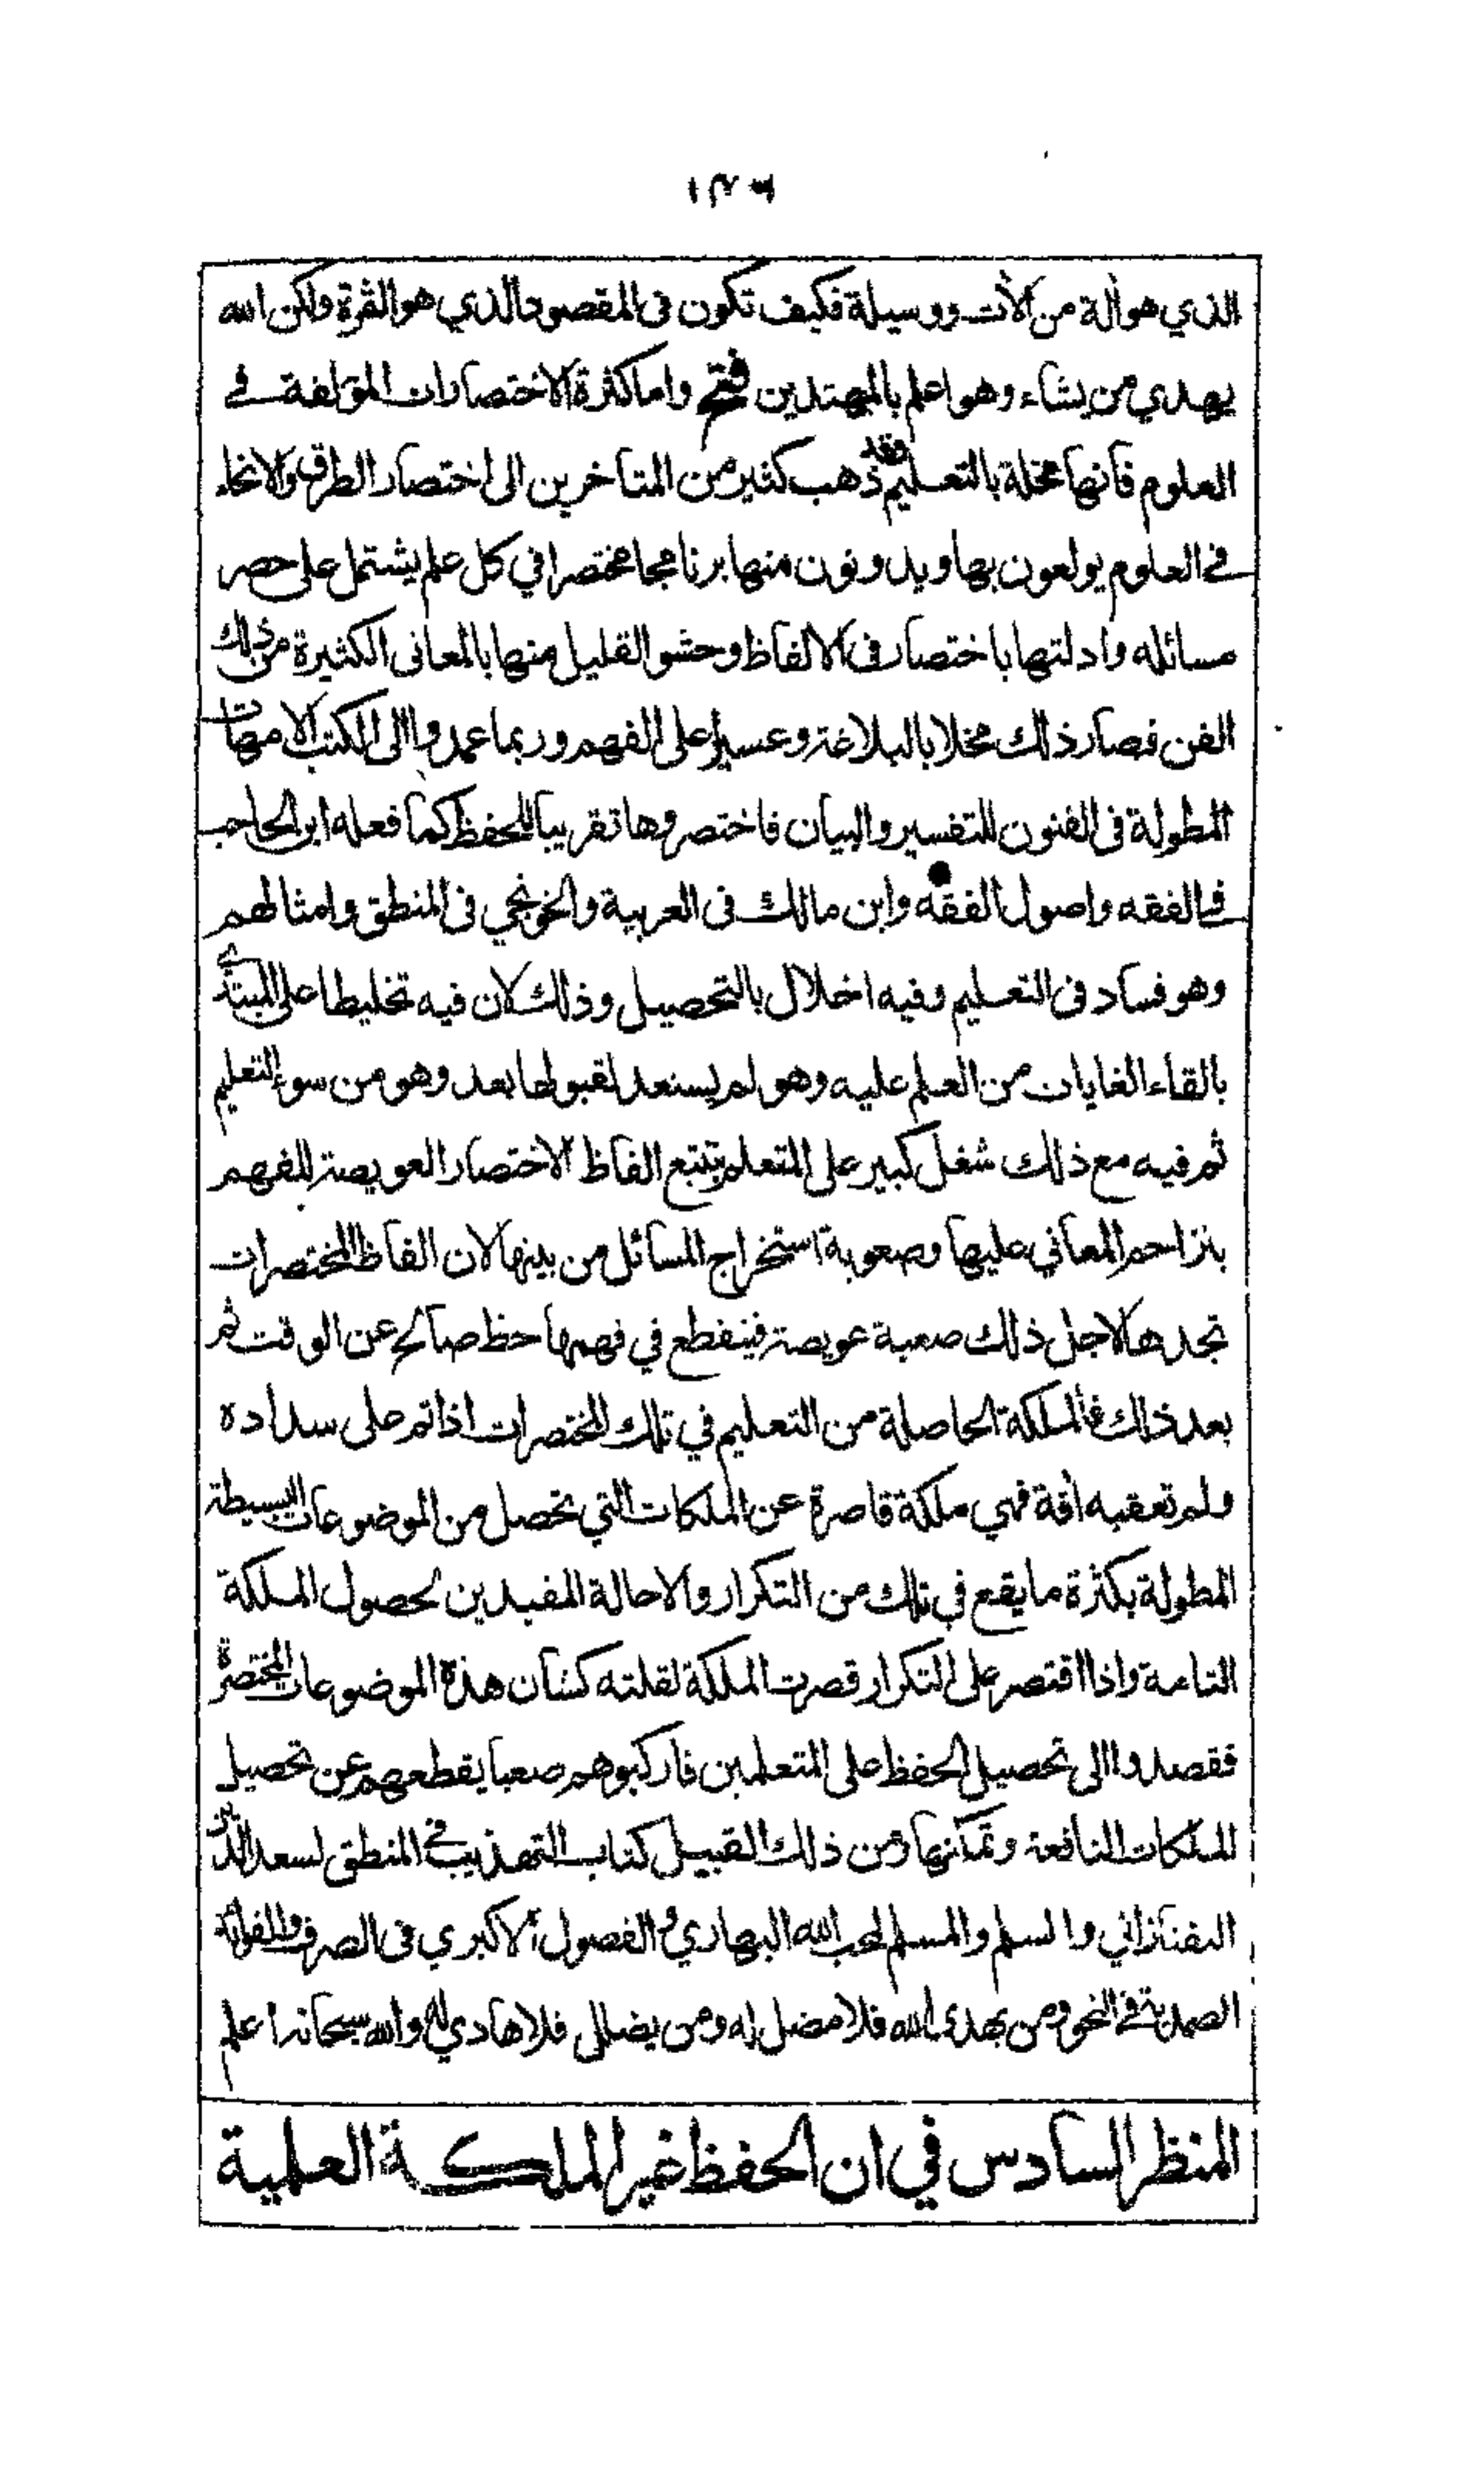 الذي هو ألة من ألات ووسيلة فكيف تكون فى المقصود الذي هو الثمرة ولكن الله
يهدي من يشاء وهو اعلم بالمهتدين فتح واما كثرة الاختصارات المؤلفة في
العلوم فانها مخلة بالتعليم فقد ذهب كثير من المتاخرين الى اختصار الطرق والانحاء
في العلوم يولعون بها ويدونون منها برنامجا مختصرا في كل علم يشتمل على حصر
مسائله وادلتها باختصار فى الالفاظ وحشو القليل منها بالمعانى الكثيرة من ذلك
الفن فصار ذلك مخلا بالبلاغة وعسيرا على الفهم وربما عمدوا الى الكتب الامهات
المطولة فى الفنون للتفسير والبيان فاختصروها تقريبا للحفظ كما فعله ابن الحاجب
فى الفقه واصول الفقه وابن مالك فى العربية والخونجي فى المنطق وامثالهم
وهو فساد فى التعليم وفيه اخلال بالتحصيل وذلك لان فيه تخليطا على المبتدي
بالقاء الغايات من العلم عليه وهو لم يستعد لقبولها بعد وهو من سوء التعليم
ثم فيه مع ذلك شغل كبير على المتعلم بتتبع الفاظ الاختصار العويصة للفهم
بتزاحم المعاني عليها وصعوبة استخراج المسائل من بينها لان الفاظ المختصرات
تجدها لاجل ذلك صعبة عويصة فينقطع في فهمها حظ صالح عن الوقت ثم
بعد ذلك فالملكة الحاصلة من التعليم في تلك المختصرات اذا تم على سداده
ولم تعقبه افة فهي ملكة قاصرة عن الملكات التي تحصل من الموضوعات البسيطة
المطولة بكثرة ما يقع في تلك من التكرار والاحالة المفيدين لحصول الملكة
التامة واذا اقتصر على التكرار قصرت الملكة لقلته كشان هذه الموضوعات المختصرة
فقصدوا الى تحصيل الحفظ على المتعلمين فاركبوهم صعبا يقطعهم عن تحصيل
الملكات النافعة وتمكنها ومن ذلك القبيل كتاب التهذيب في المنطق لسعد الدين
التفتازاني والسلم والمسلم لمحب الله البهاري والفصول الاكبري فى الصرف والفوائد
الصمدية في النحو ومن يهدى الله فلا مضل له ومن يضلل فلا هادي له والله سبحانه اعلم
المنظر السادس في ان الحفظ غير الملكة العلمية